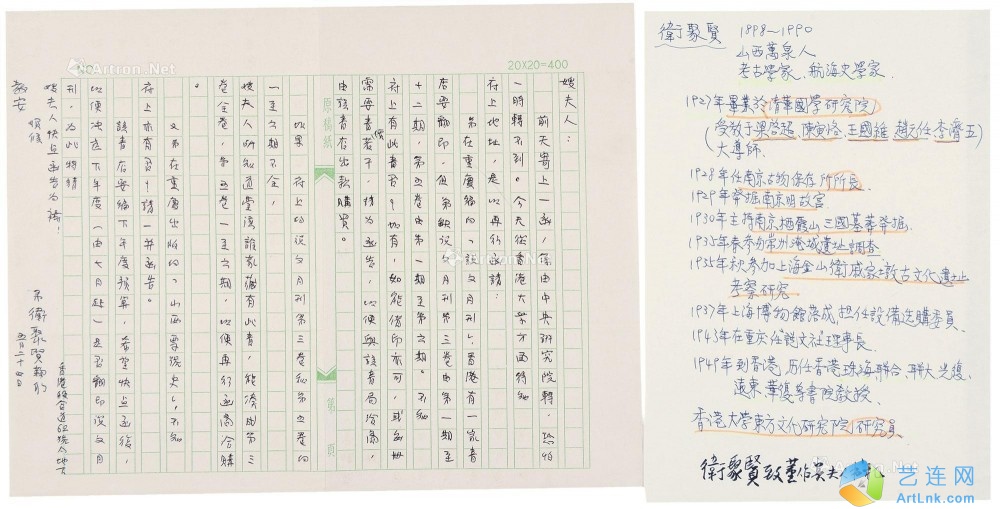 20X20=400
嫂夫人：
前天寄上一函，係由中央研究院轉，恐怕
一時轉不到。今天從香港大學方面得知
府上地址，是以再行函請：
弟在重慶編的《說文月刊》，香港有一家書
店要翻印，但缺說文月刊第三卷由第一期至
十二期，第五卷由第一期至第六期。不知
府上有此書否？如有，如能借印亦可，或
需要書價若干，請為函告，以便與該書局洽商，
由該書店出款購買。
如果 府上的說文月刊第三卷和第五卷的
一至六期不全，
嫂夫人所知道台灣誰家藏有此書，能湊成第三
卷全卷，第五卷一至六期，以便再行函商合購
。
又弟在重慶出版的《山西票號史》，不知
府上亦有否？請一併函告。
該書店要編下年度預算，希望快點函復，
以便決定下年度（由七月起）是否翻印說文月
刊。為此特請
嫂夫人快點函告為禱！
順候
敬安
弟衛聚賢鞠躬
五月二十四日
原稿紙
第 頁
衛聚賢 1898～1990
山西萬泉人
考古學家、航海史學家.
1927年畢業於清華國學研究院
(受教于梁啓超、陳寅恪、王國維、趙元任、李濟五
大導師.
1928年任南京古物保存所所長.
1929年發掘南京明故宮
1930年主持南京栖霞山三國墓葬發掘.
1935年春參加常州淹城遺址調查
1935年秋參加上海金山衛戚家墩古文化遺址
考察研究
1937年上海博物館落成,担任設備选購委員.
1943年在重庆任說文社理事長.
1949年到香港,历任香港珠海、聯合、聯大、光復.
遠東、華僑等書院教授.
香港大學東方文化研究院研究員
衛聚賢致董作賓夫人
Artron.Net
艺连网
ArtLnk.com